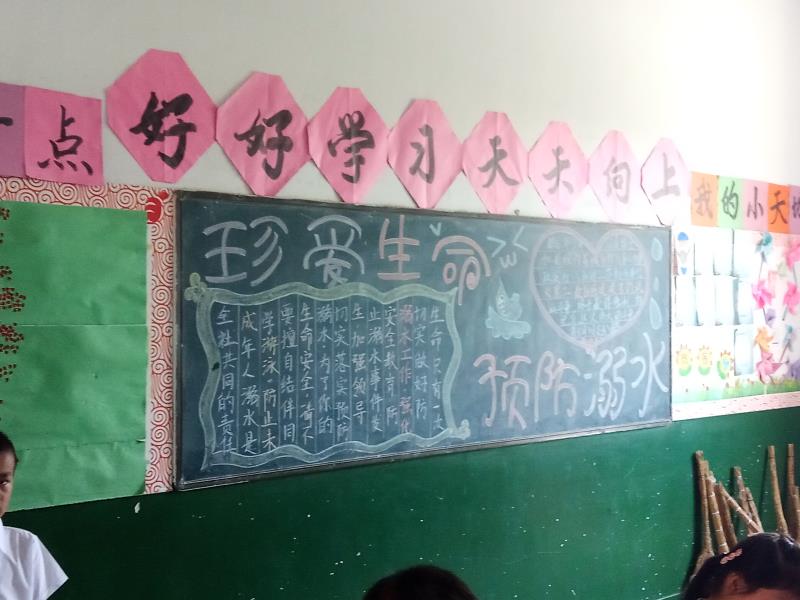 点
好好学习天天向上
我的小天地
珍爱生命
生命只有一次
切实做好防
溺水工作强化
安全教育防
止溺水事件发
生加强领导
切实落实预防
溺水为了你的
生命安全请不
要擅自结伴同
学游泳防止未
成年人溺水是
全社共同的责任
预防溺水